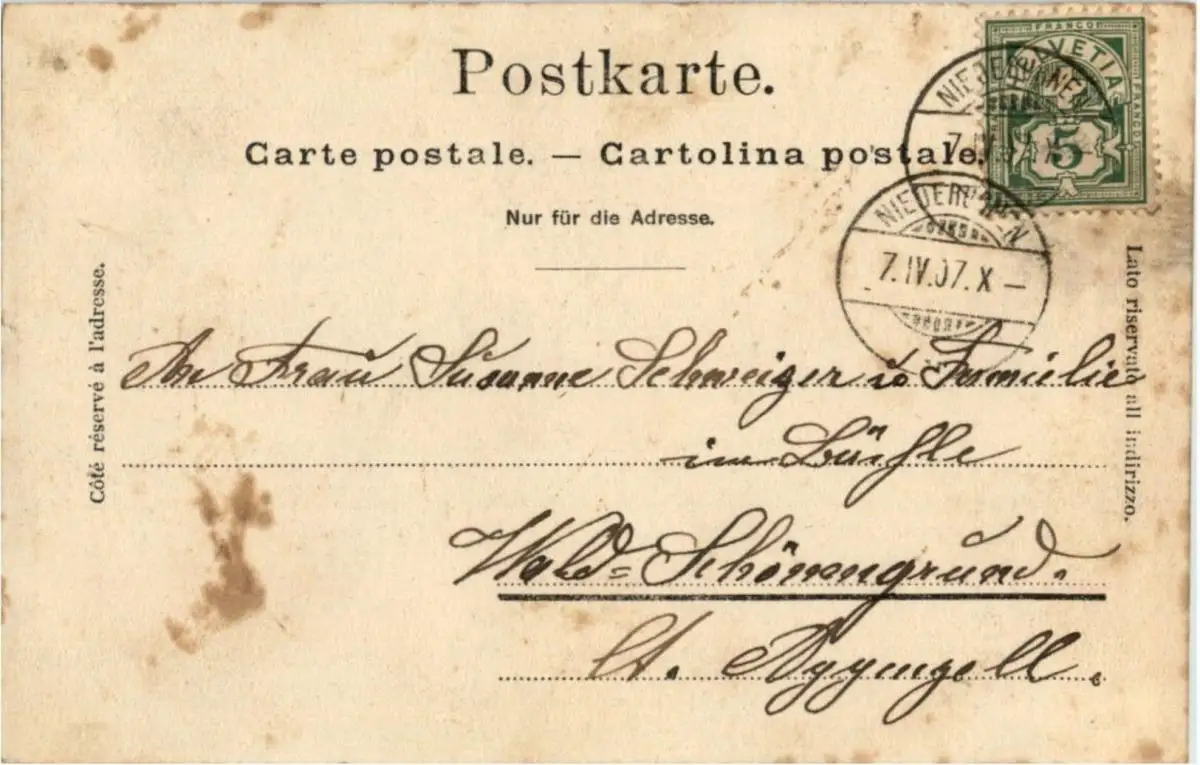 Postkarte.
Carte postale. — Cartolina postale.
Nur für die Adresse.
FRANCO
HELVETIA
FRANCO
5
NIEDERURNEN
7. IV. 07. X –
NIEDERURNEN
7. IV. 07. X –
Côté réservé à l'adresse.
Lato riservato all indirizzo.
An Frau Susanne Schweizer Familie
im
Wald-Schönengrund.
Ct. Appenzell.